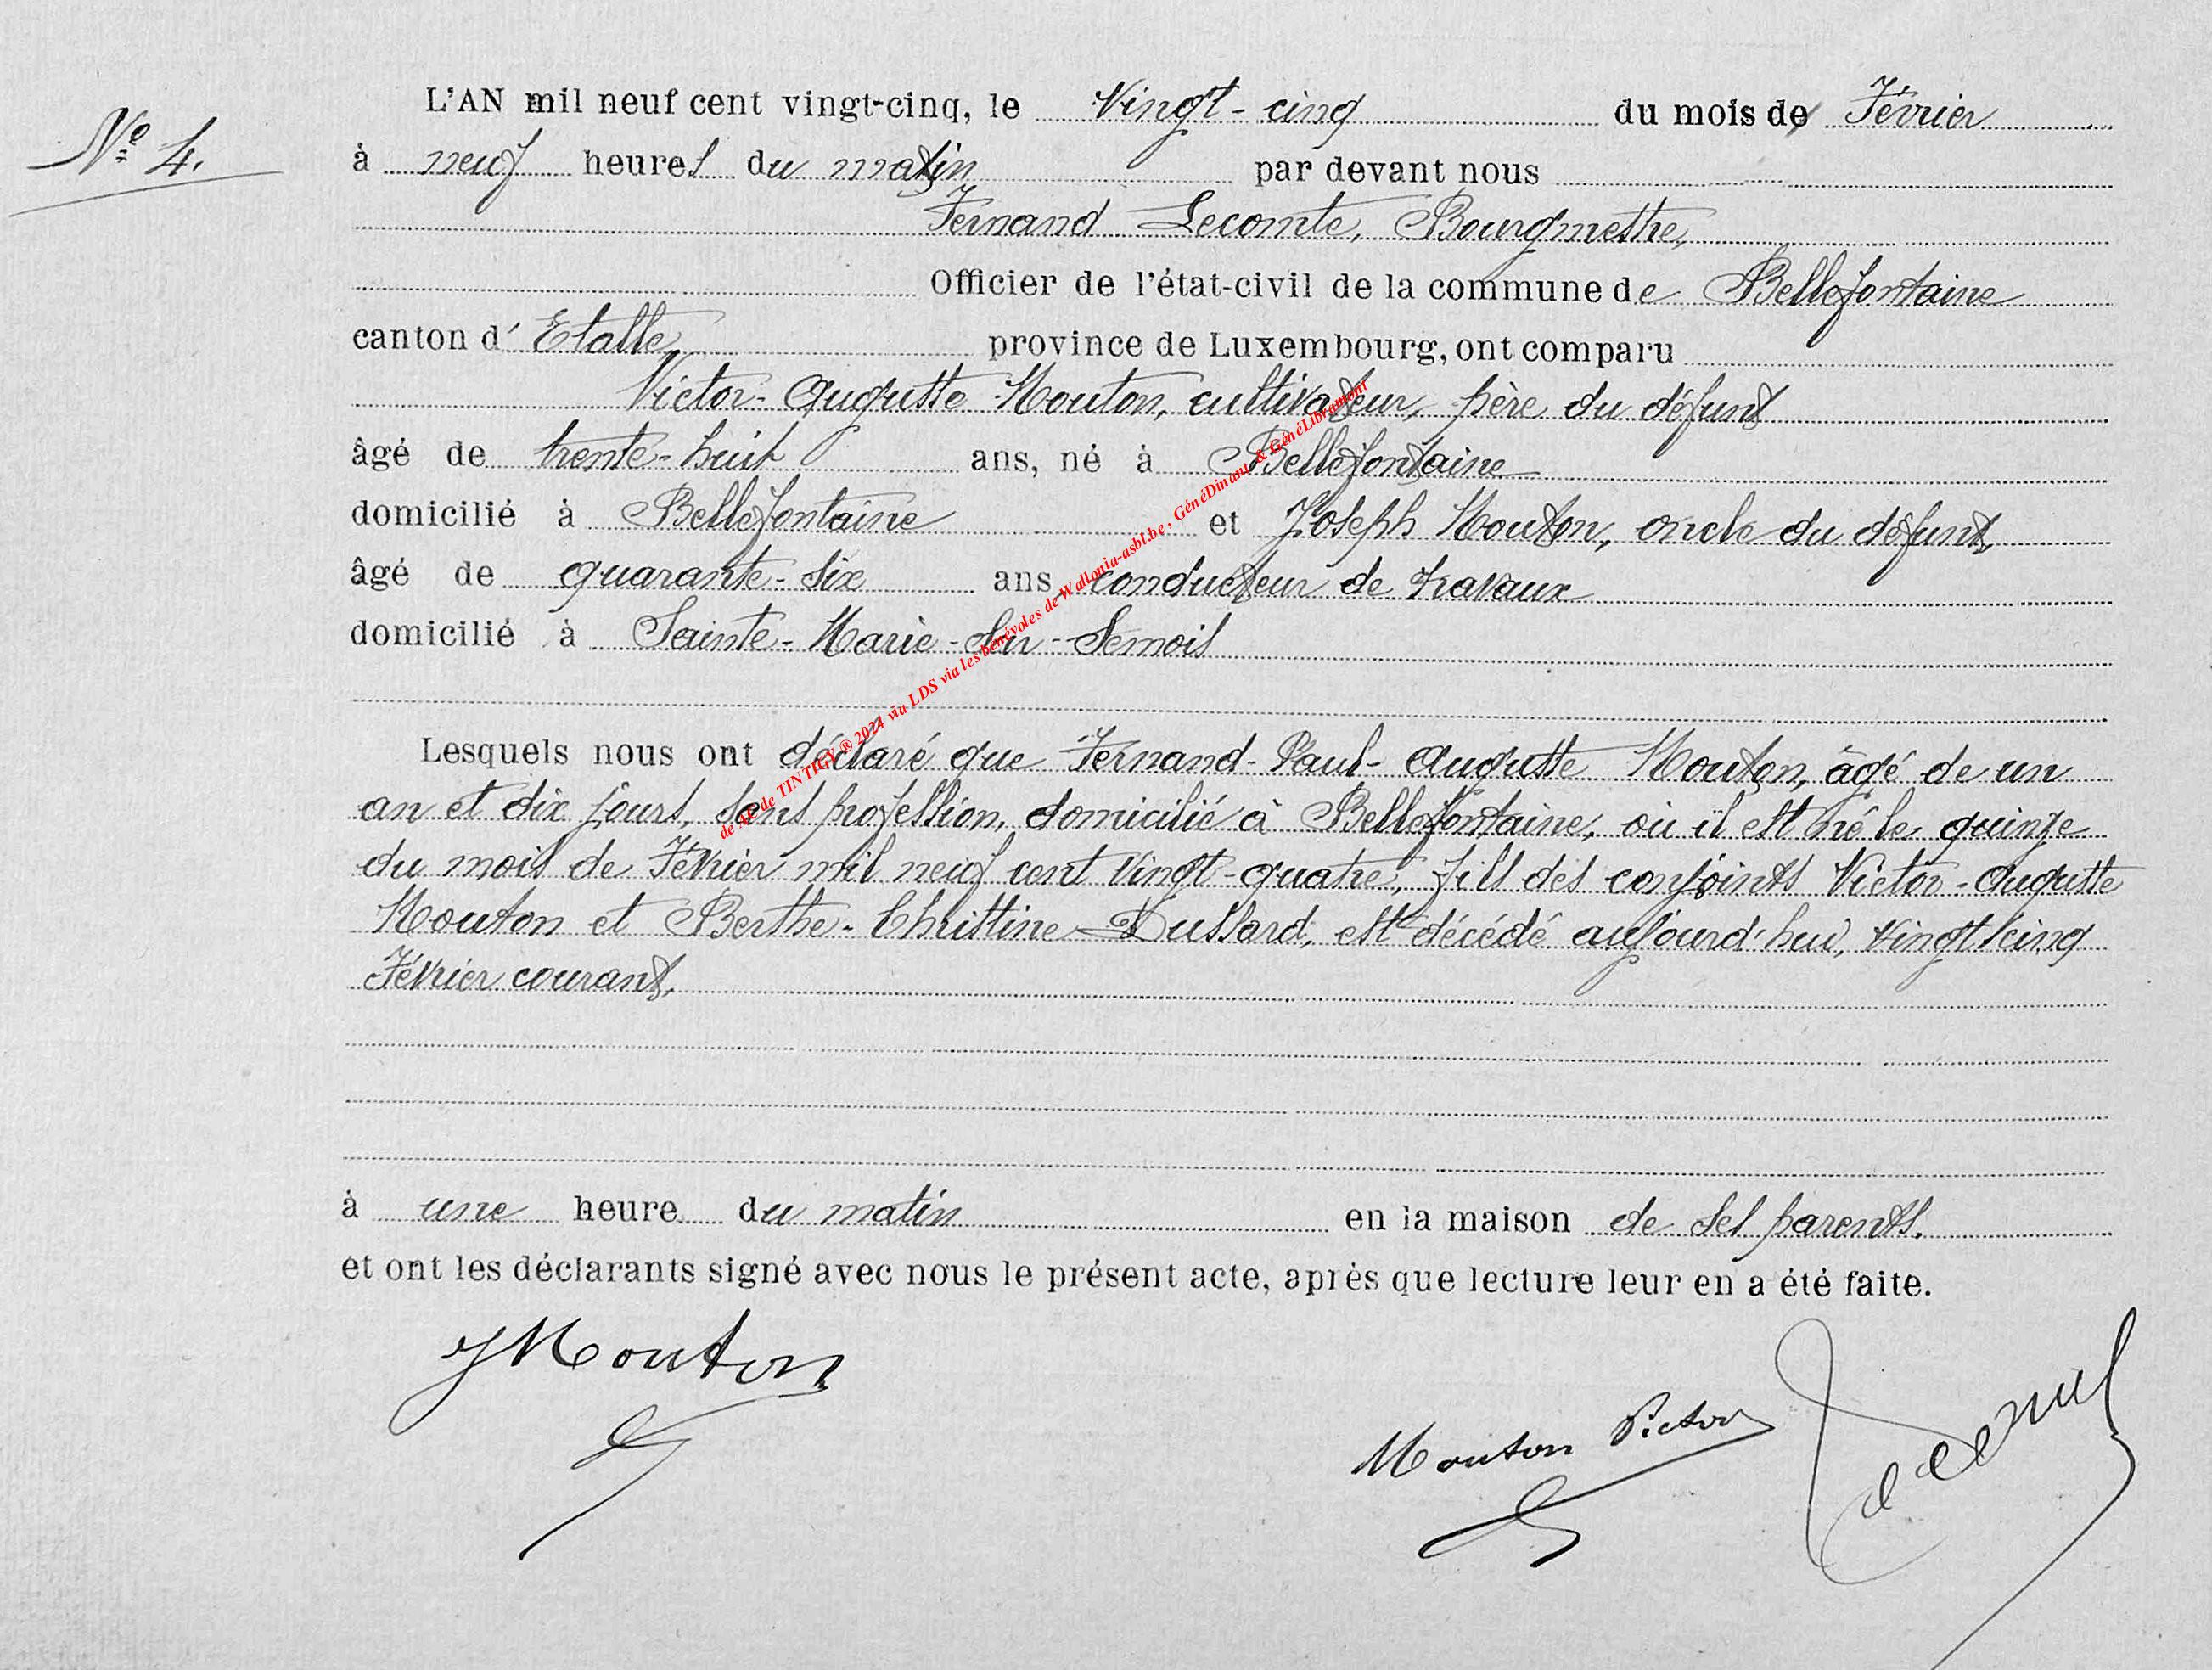 L'AN mil neuf cent vingt-cinq, le Vingt-cinq du mois de Février
N° 4.
à neuf heures du matin par devant nous
Fernand Lecomte, Bourgmestre,
Officier de l'état-civil de la commune de Bellefontaine
canton d' Etalle, province de Luxembourg, ont comparu
Victor-Auguste Mouton, cultivateur, père du défunt
âgé de trente-huit ans, né à Bellefontaine
domicilié à Bellefontaine et Joseph Mouton, oncle du défunt,
âgé de quarante-six ans, conducteur de travaux
domicilié à Sainte-Marie-sur-Semois
de AE de TINTIGY ® 2024 via LDS via les bénévoles de Wallonia-asbl.be, GénéDinant & GénéLibramont
Lesquels nous ont déclaré que Fernand-Paul-Auguste Mouton, âgé de un
an et dix jours, sans profession, domicilié à Bellefontaine, où il est né le quinze
du mois de Février mil neuf cent vingt-quatre, fils des conjoints Victor-Auguste
Mouton et Berthe-Christine Dussard, est décédé aujourd'hui, vingt-cinq
Février courant,
à une heure du matin en la maison de ses parents.
et ont les déclarants signé avec nous le présent acte, après que lecture leur en a été faite.
J Mouton
Mouton Victor